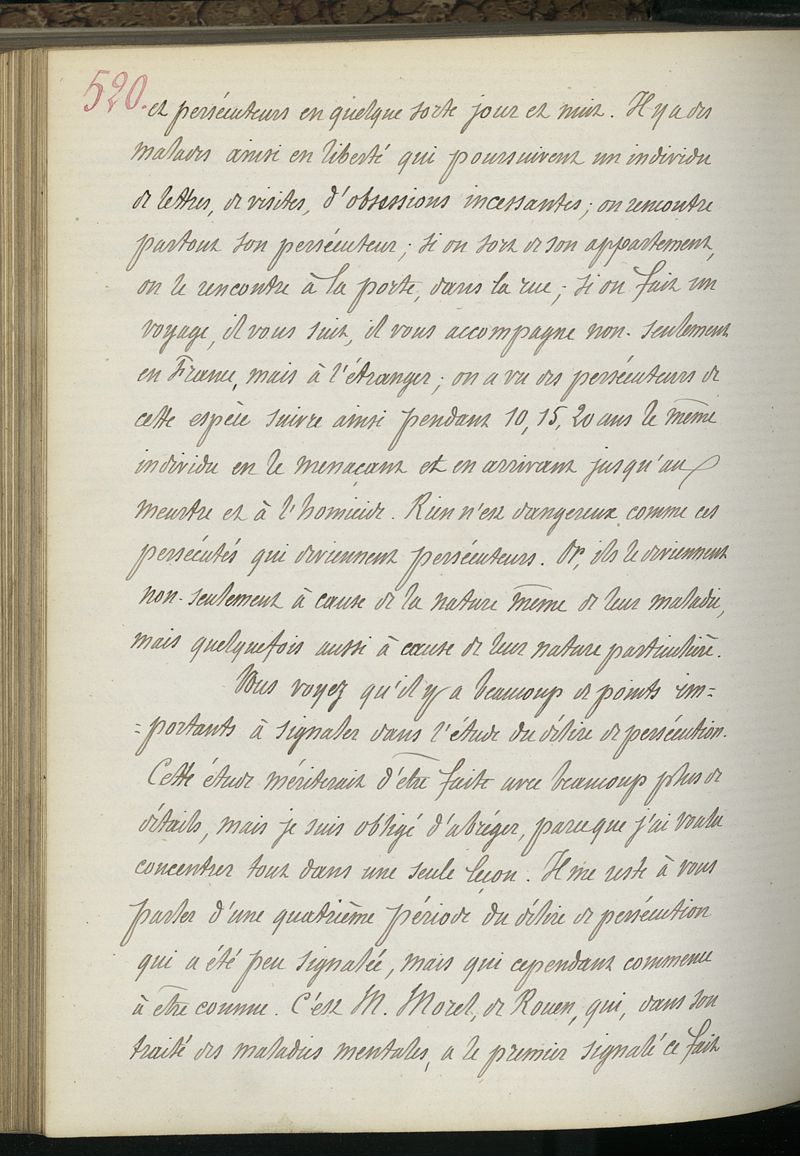 520.
et persécuteurs en quelque sorte jour et nuit. Il y a des
malades ainsi en liberté qui poursuivent un individu
de lettres, de visites, d'obsessions incessantes; on rencontre
partout son persécuteur; si on sort de son appartement,
on le rencontre à la porte, dans la rue; si on fait un
voyage, il vous suit, il vous accompagne non-seulement
en France, mais à l'étranger; on a vu des persécuteurs de
cette espèce suivre ainsi pendant 10, 15, 20 ans le même
individu en le menaçant et en arrivant jusqu'au
meurtre et à l'homicide. Rien n'est dangereux comme ces
persécutés qui deviennent persécuteurs. Or, ils le deviennent
non-seulement à cause de la nature même de leur maladie,
mais quelquefois aussi à cause de leur nature particulière.
Vous voyez qu'il y a beaucoup de points im=
=portants à signaler dans l'étude du délire de persécution.
Cette étude mériterait d'être faite avec beaucoup plus de
détails, mais je suis obligé d'abréger, parceque j'ai voulu
concentrer tout dans une seule leçon. Il me reste à vous
parler d'une quatrième période du délire de persécution
qui a été peu signalée, mais qui cependant commence
à être connue. C'est M. Morel, de Rouen, qui, dans son
traité des maladies mentales, a le premier signalé ce fait